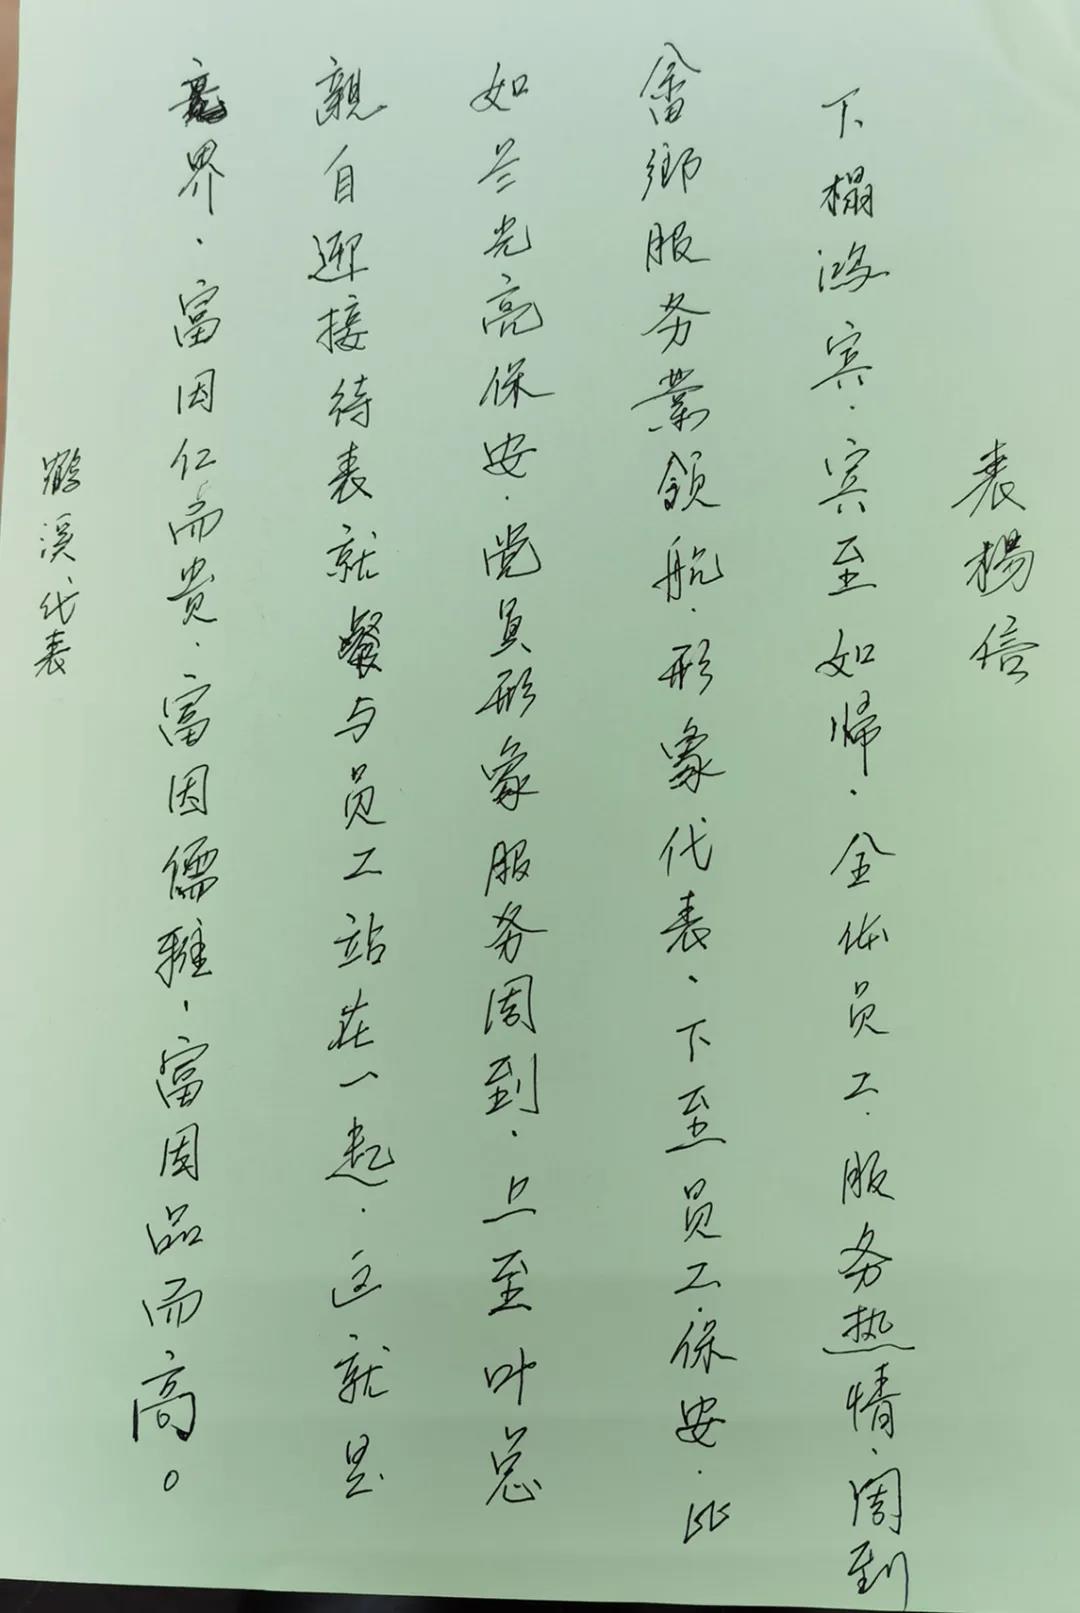 表楊信
下榻鸿宾.宾至如歸.全体员工.服务热情.周到
畲鄉服务業领航.形象代表、下至员工.保安.比
如兰光亮保安.党員形象服务周到.上至叶总
親自迎接待表就餐与员工站在一起.这就是
境界、富因仁而贵.富因儒雅.富因品而高。
鹤溪代表